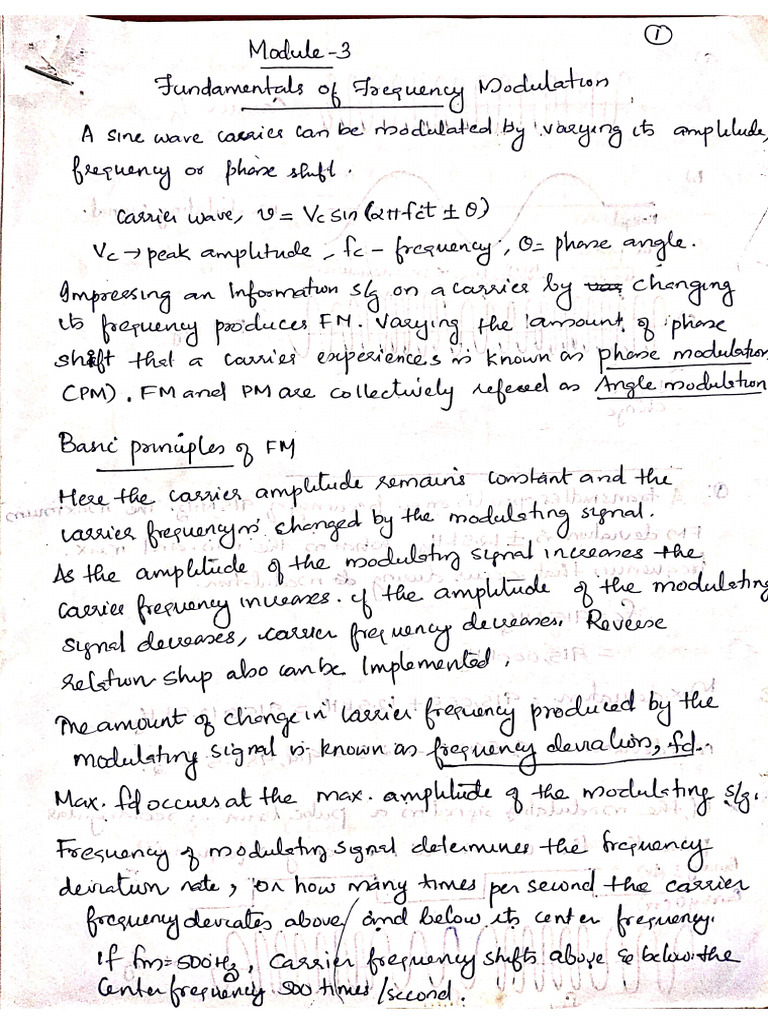 ①
Module-3
Fundamentals of Frequency Modulation
A sine wave carrier can be modulated by varying its amplitude,
frequency or phase shift.
Carrier wave, v = Vc sin (2πfct ± θ)
Vc → peak amplitude, fc - frequency, θ = phase angle.
Impressing an Information s/g on a carrier by changing
its frequency produces FM. Varying the amount of phase
shift that a carrier experiences is known as phase modulation
(PM). FM and PM are collectively refered as Angle modulation
Basic principles of FM
Here the carrier amplitude remains constant and the
carrier frequency is changed by the modulating signal.
As the amplitude of the modulating signal increases the
carrier frequency increases. If the amplitude of the modulating
signal decreases, carrier frequency decreases. Reverse
relation ship also can be Implemented.
The amount of change in carrier frequency produced by the
modulating signal is known as frequency deviation, fd.
Max. fd occurs at the max. amplitude of the modulating s/g.
Frequency of modulating signal determines the frequency
deviation rate, or how many times per second the carrier
frequency deviates above/and below its center frequency.
If fm=500Hz, carrier frequency shifts above & below the
center frequency 500 times/second.